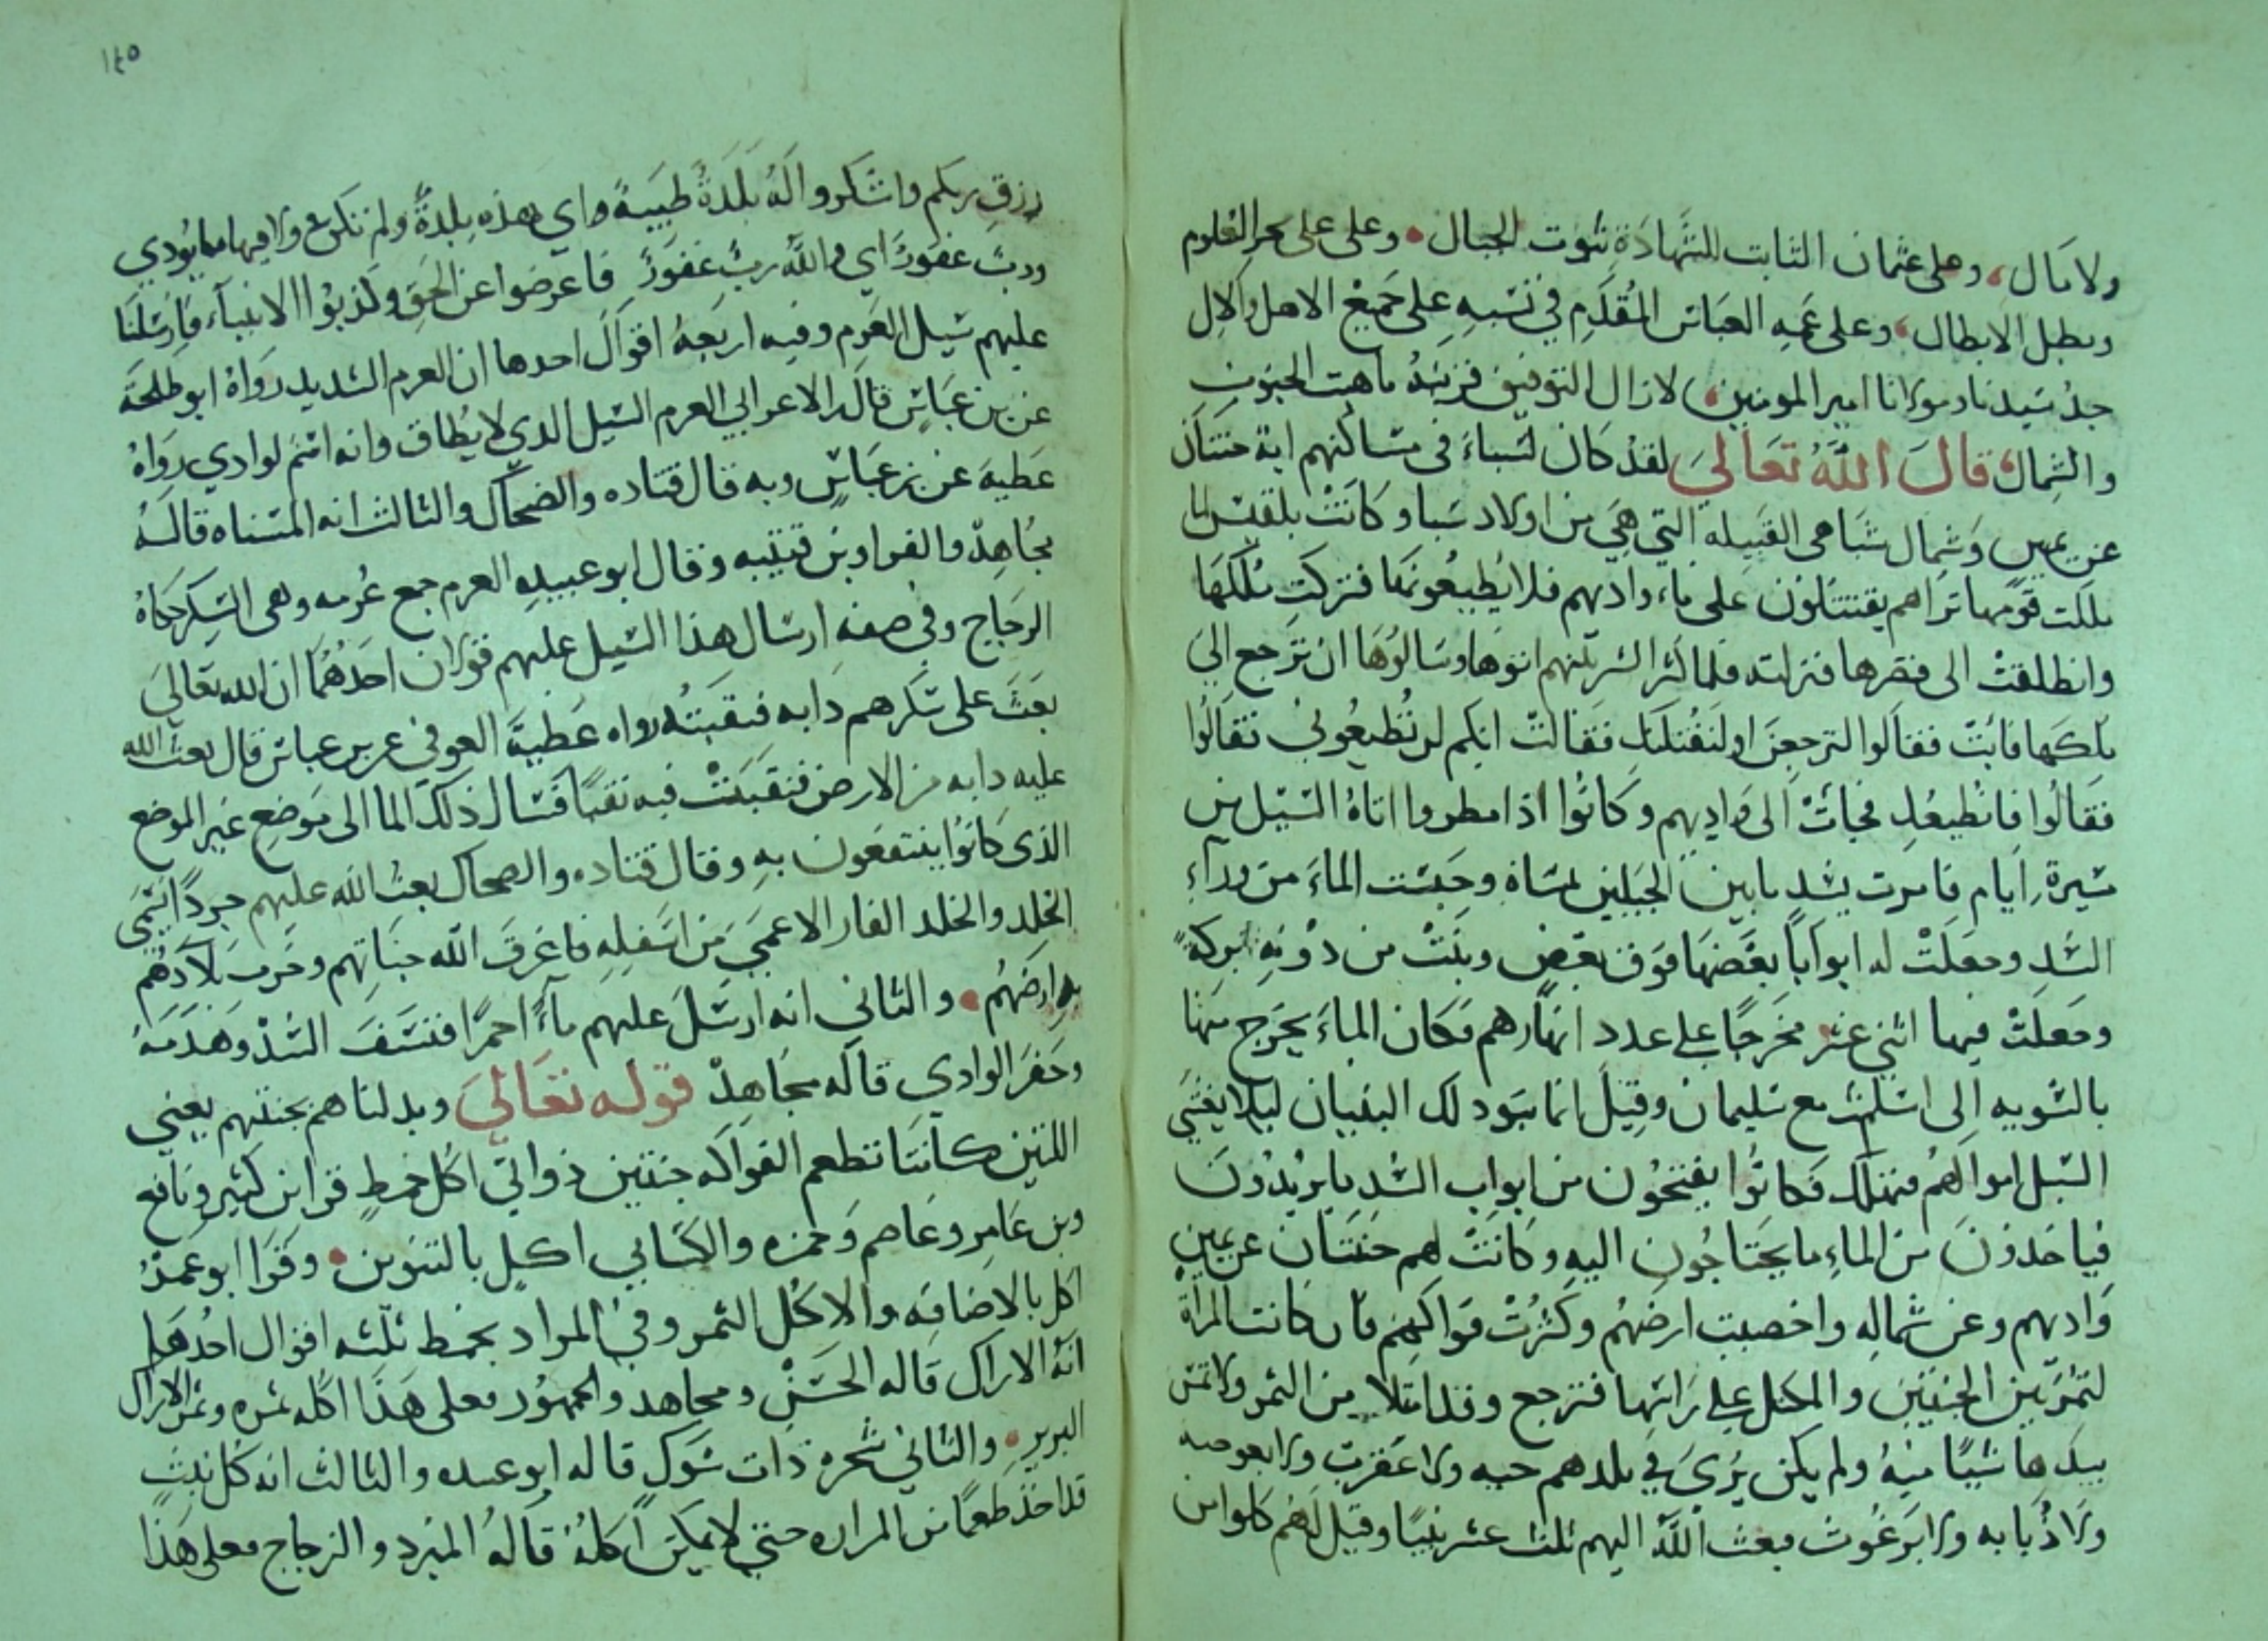 ولا مال، وعلى عثمان الثابت للشهادة ثبوت الجبال وعلى علي بحر العلوم
وبطل الابطال، وعلى عمه العباس المقدم في نسبه على جميع الاهل والال
جد سيدنا ومولانا امير المومنين، لا زال التوفيق قرينه ما هبت الجنوب
والشمال، قال الله تعالى لقد كان لسباء في مساكنهم اية جنتان
عن يمين وشمال سبا هي القبيلة التي هي من اولاد سبا وكانت بلقيس لما
ملكت قومها تراهم يقتتلون على ماء واديهم فلا يطيعونها فتركت ملكها
وانطلقت الى قصرها فنزلته فلما كثر الشر بينهم اتوها وسالوها ان ترجع الى
ملكها فابت فقالوا لترجعن او لنقتلنك فقالت انكم لن تطيعوني فقالوا
فقالوا فانطيعك فجات الى واديهم وكانوا اذا مطروا اتاه السيل من
مسيرة ايام فامرت بسد ما بين الجبلين بمسناة وحبست الماء من وراء
السد وجعلت له ابوابا بعضها فوق بعض وبنت من دونه بركة
وجعلت فيها اثني عشر مخرجا على عدد انهارهم فكان الماء يخرج منها
بالسويه الى اسلمت مع سليمان وقيل انما بنوا ذلك البنيان ليلا يغشى
السيل اموالهم فتهلك فكانوا يفتحون من ابواب السد ما يريدون
فياخذون من الماء ما يحتاجون اليه وكانت لهم جنتان عن يمين
واديهم وعن شماله واخصبت ارضهم وكثرت فواكههم فان كانت المراة
لتمر بين الجنتين والمكتل على راسها فترجع وقد امتلا من الثمر ولا تمس
بيدها شيئا منه ولم يكن يرى في بلدهم حيه ولا عقرب ولا بعوضه
ولا ذبابه ولا برغوث فبعث الله اليهم ثلث عشر نبيا وقيل لهم كلوا من
١٤٥
رزق ربكم واشكروا له بلدة طيبة واي هذه بلدة ولم تكن ولا فيها ما يودي
ورب غفور اي والله رب غفور فاعرضوا عن الحق وكذبوا الانبياء فارسلنا
عليهم سيل العرم وفيه اربعة اقوال احدها ان العرم الشديد رواه ابو طلحة
عن بن عباس قال الاعرابي العرم السيل الذي لا يطاق وانه اسم لوادي رواه
عطية عن بن عباس وبه قال قتاده والضحاك والثالث انه المسناه قاله
مجاهد والفرا وبن قتيبه وقال ابو عبيده العرم جمع عرمه وهى السكر حكاه
الزجاج وفي صفة ارسال هذا السيل عليهم قولان احدهما ان الله تعالى
بعث على سكرهم دابه فنقبته رواه عطية العوفي عن بن عباس قال بعث الله
عليه دابه من الارض فنقبت فيه نقبا فسال ذلك الما الى موضع غير الموضع
الذى كانوا ينتفعون به وقال قتاده والضحاك بعث الله عليهم جردا يسمى
الخلد والخلد الفار الاعمى من اسفله فاغرق الله جناتهم وخرب بلادهم
به ارضهم والثاني انه ارسل عليهم ماء احمرا فنسف السد وهدمه
وحفر الوادي قاله مجاهد قوله تعالى وبدلناهم بجنتهم يعني
اللتين كانتا تطعم الفواكه جنتين ذواتي اكل خمط قرا بن كثير ونافع
وبن عامر وعاصم وحمزه والكسايي اكل بالتنوين وقرا ابو عمرو
اكل بالاضافه والاكل الثمر وفي المراد بخمط ثلثه اقوال احدها
انه الاراك قاله الحسن ومجاهد والجمهور فعلى هذا اكله ثمره وثمر الاراك
البرير والثاني شجره ذات شوك قاله ابو عبيده والثالث انه كل نبت
قد اخذ طعما من المراره حتى لا يمكن اكله قاله المبرد والزجاج فعلى هذا